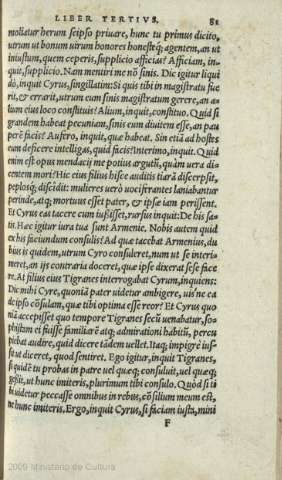 LIBER TERTIVS. 81
moliatur herum seipso priuare, hunc tu primus dicito,
utrum ut bonum uirum honores honestéq; agentem, an ut
iniustum, quem ceperis, supplicio afficias? Afficiam, in-
quit, supplicio. Nam meniri me nõ sinis. Dic igitur liqui
dò, inquit Cyrus, singillatim: Si quis tibi in magistratu fue
rit, & errarit, utrum eum sinis magistratum gerere, an a-
lium eius loco constituis? Alium, inquit, constituo. Quid si
grandem habeat pecuniam, sinis eum diuitem esse, an pau
perẽ facis? Aufero, inquit, quæ habeat. Sin etiã ad hostes
eum deficere intelligas, quid facis? Interimo, inquit. Quid
enim est opus mendacij me potius argutũ, quàm uera di-
centem mori? Hic eius filius hisce auditis tiarã discerpsit,
peplosq; discidit: mulieres uerò uociferantes laniabantur
perinde, atq; mortuus esset pater, & ipsæ iam perissent.
Et Cyrus eas tacere cum iussisset, rursus inquit: De his sa-
tis. Hæc igitur iura tua sunt Armenie. Nobis autem quid
ex his faciundum consulis? Ad quæ tacebat Armenius, du
bius is quidem, utrum Cyro consuleret, num ut se interi-
meret, an ijs contraria doceret, quæ ipse dixerat sese face
re. At filius eius Tigranes interrogabat Cyrum, inquiens:
Dic mihi Cyre, quoniã pater uidetur ambigere, uis'ne ea
de ipso cõsulam, quæ tibi optima esse reor? Et Cyrus quo
niã accepisset quo tempore Tigranes secũ uenabatur, so-
phistum ei fuisse familiarẽ atq; admirationi habitũ, percu
piebat audire, quid dicere tãdem uellet. Itaq; impigrè ius-
sit ut diceret, quod sentiret. Ego igitur, inquit Tigranes,
si quidẽ tu probas in patre uel quæq; consuluit, uel quæq;
gessit, ut hunc imiteris, plurimum tibi consulo. Quòd si ti
bi uidetur peccasse omnibus in rebus, cõsilium meum est,
ne hunc imiteris. Ergo, inquit Cyrus, si faciam iusta, mini
F
2009 Ministerio de Cultura